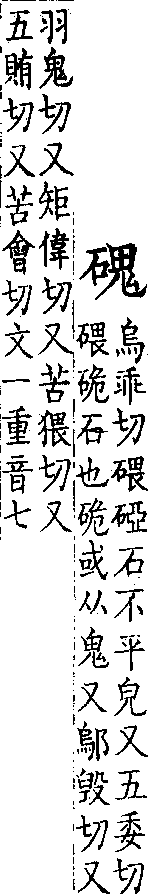 磈
烏乖切碨磑石不平皃又五委切
碨硊石也硊或从鬼又鄔毀切又
羽鬼切又矩偉切又苦猥切又
五賄切又苦會切文一重音七